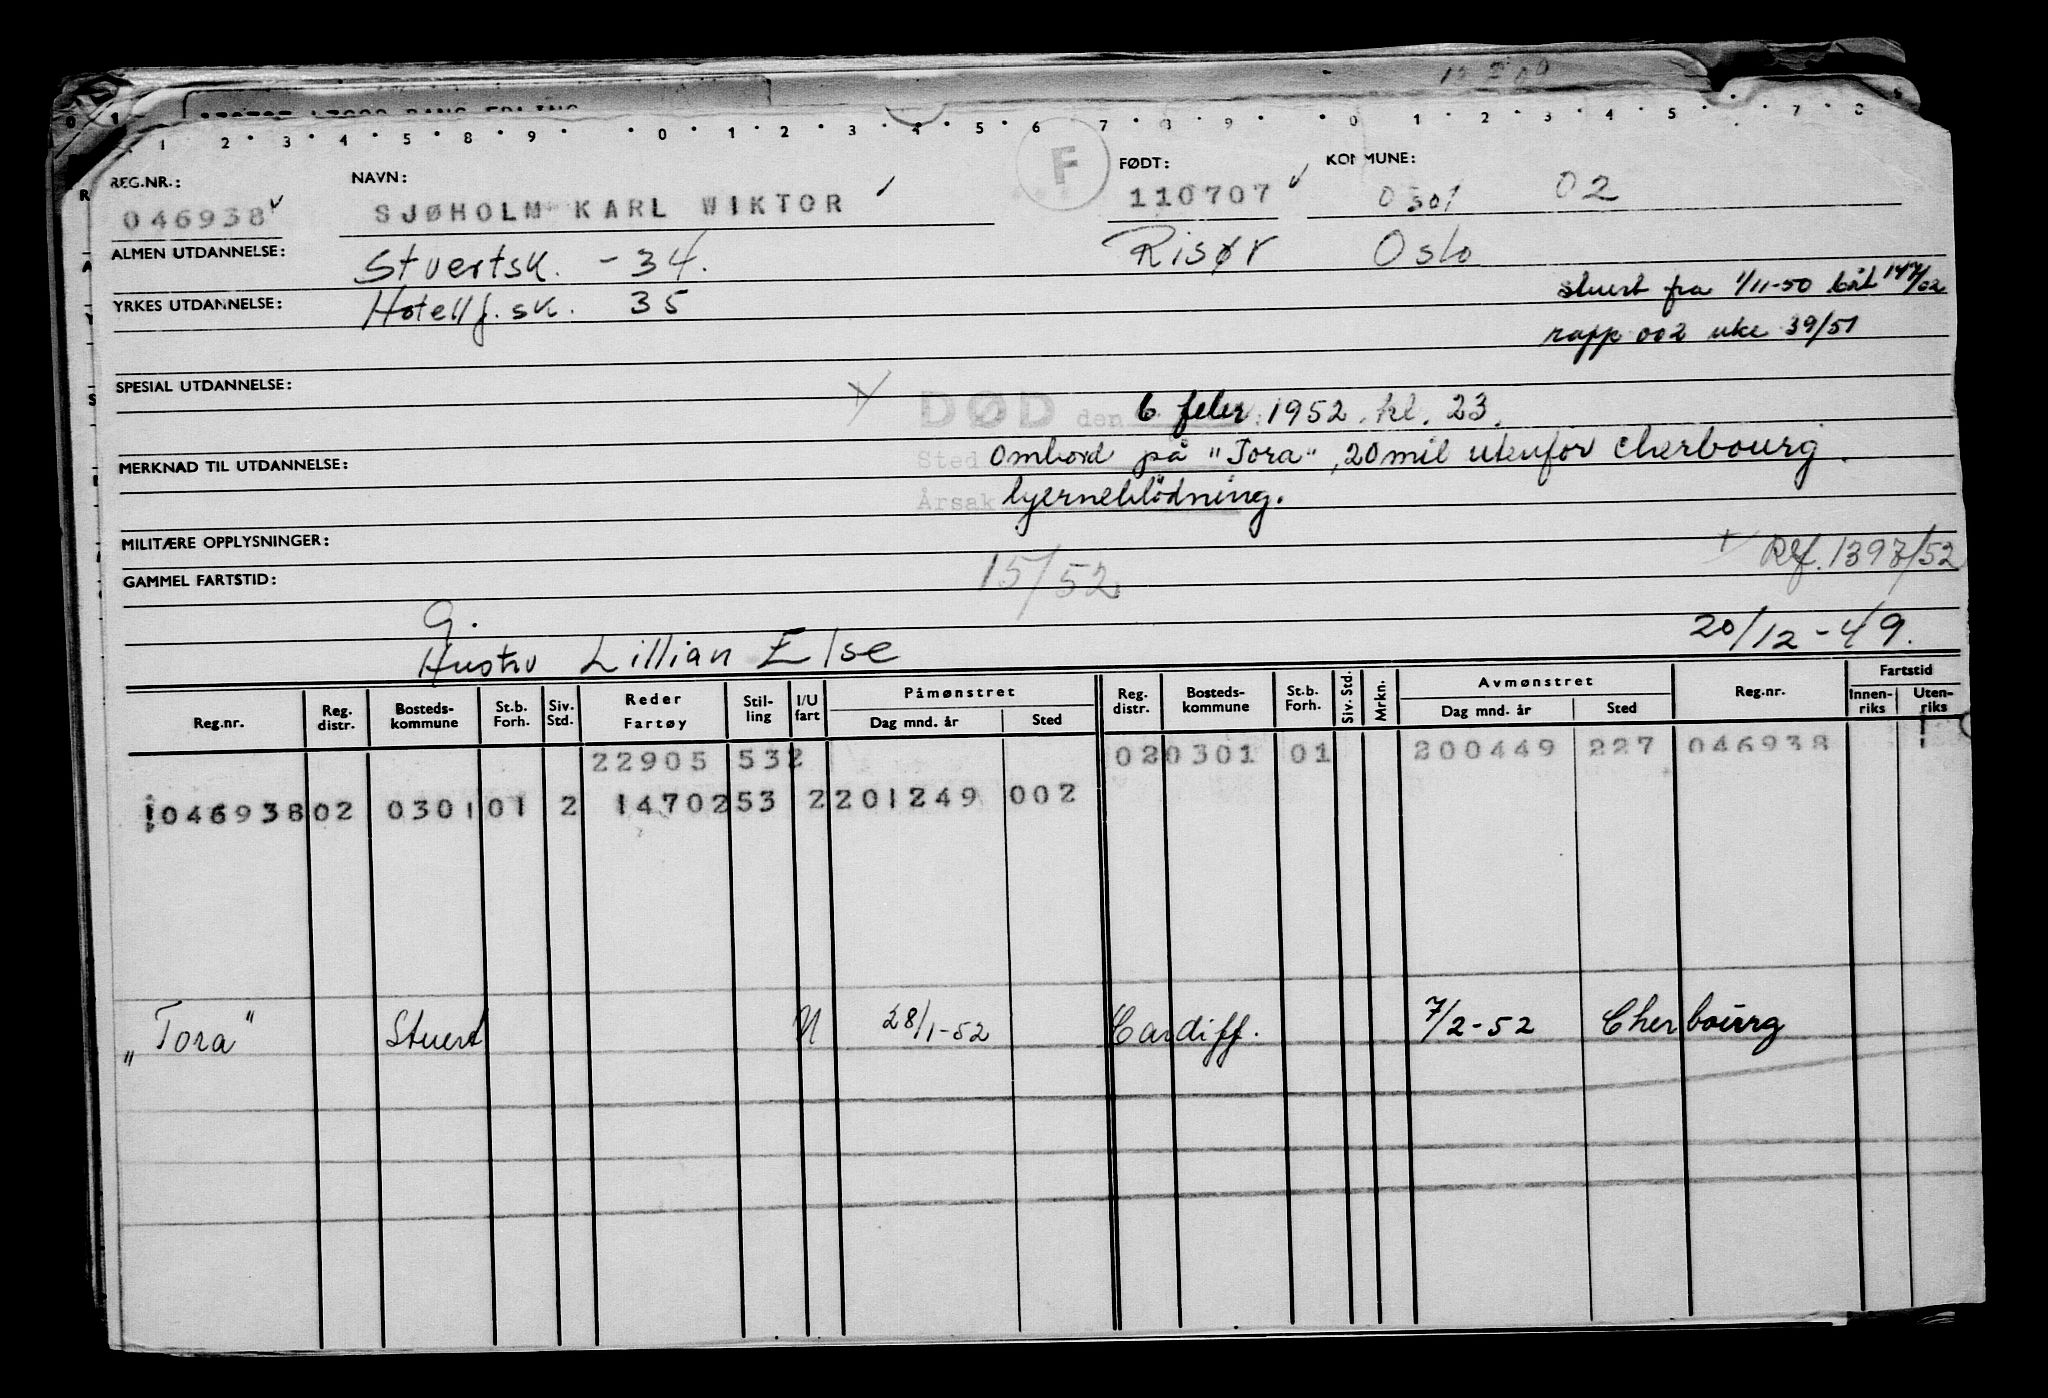 1 2 3 4 5 8 9 0 1 2 3 4 5 6 7 8 9 0 1 2 3 4 5 7
REG.NR.: NAVN: F FØDT: KOMMUNE:
046938 SJØHOLM KARL WIKTOR 110707 0301 02
ALMEN UTDANNELSE: Stuertsk. - 34. Risør Oslo
YRKES UTDANNELSE: Hotellf.sk. 35 stuert fra 1/11-50 båt 147/02
rapp 002 uke 39/51
SPESIAL UTDANNELSE:
DØD den 6 febr. 1952. kl. 23.
MERKNAD TIL UTDANNELSE: Sted ombord på "Tora", 20 mil utenfor Cherbourg.
Årsak hjerneblödning.
MILITÆRE OPPLYSNINGER: Ref. 1397/52
GAMMEL FARTSTID: 15/52
G. 20/12-49.
Hustru Lillian Else
Reg.nr. Reg. distr. Bosteds-kommune St.b. Forh. Siv. Std. Reder Fartøy Stil-ling I/U fart Påmønstret Dag mnd. år Sted Reg. distr. Bosteds-kommune St.b. Forh. Siv. Std. Mrkn. Avmønstret Dag mnd. år Sted Reg.nr. Fartstid Innen-riks Uten-riks
22905 532 020301 01 200449 227 046938
04693802 030101 2 1470253 2201249 002
"Tora" Stuert U 28/1-52 Cardiff. 7/2-52 Cherbourg